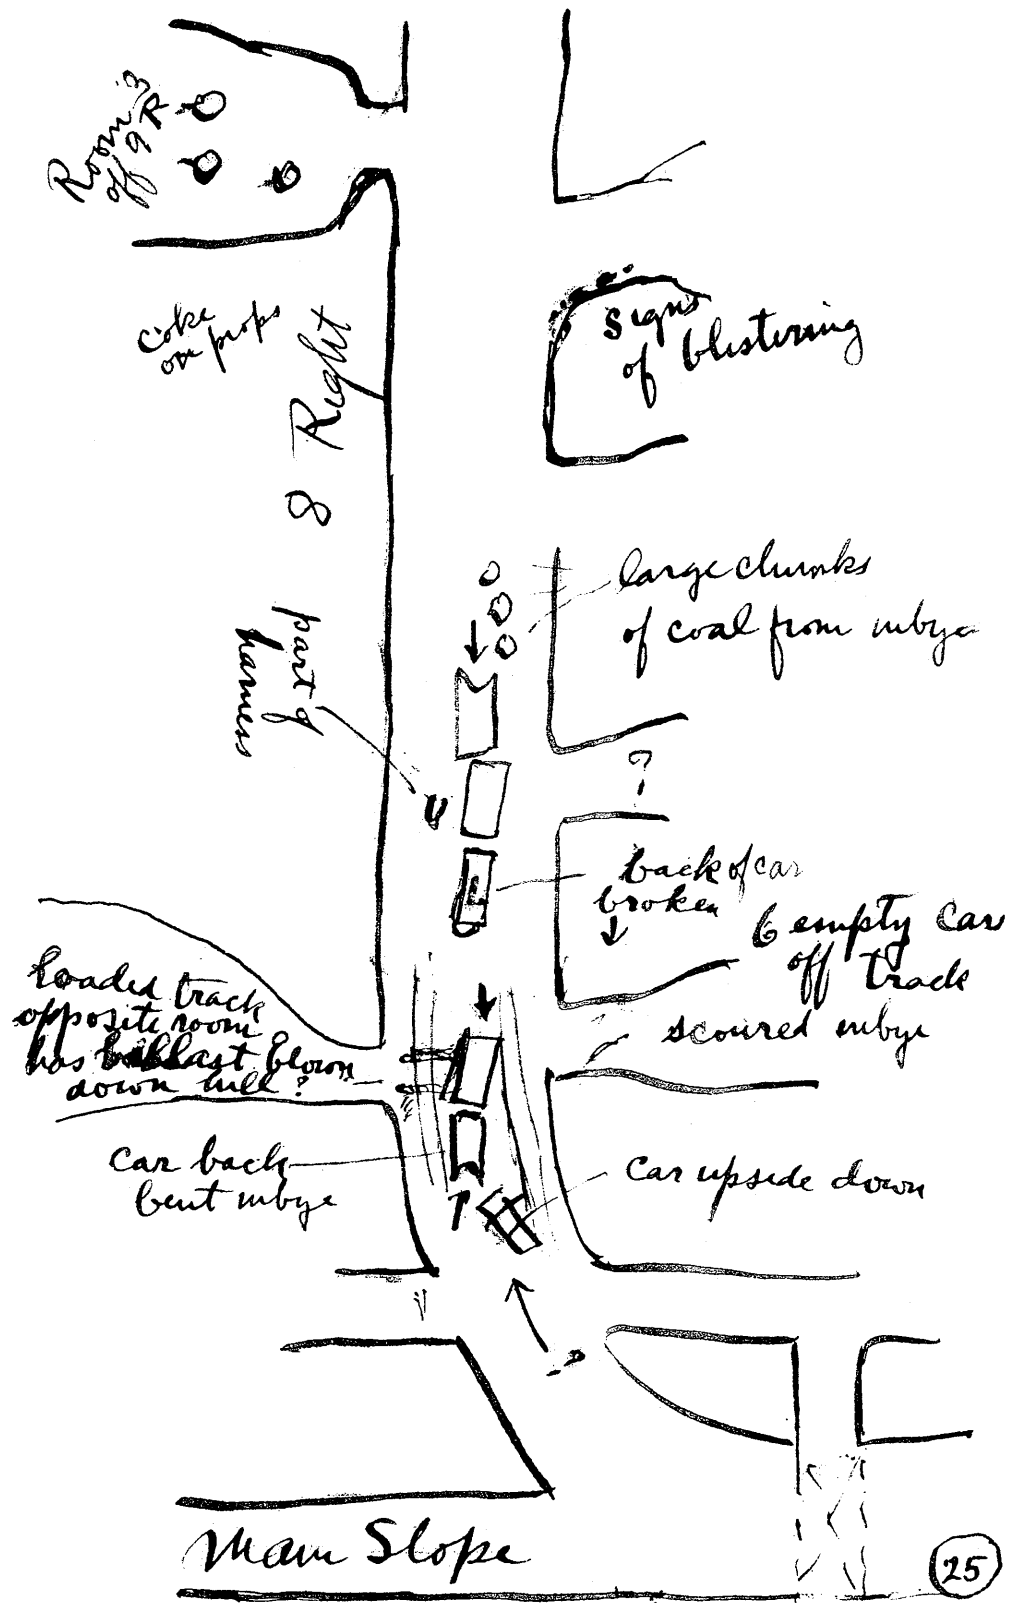 Room 3
off 9 R
coke
on props
8 Right
signs
of blistering
large chunks
of coal from inbye
part of
harness
?
back of car
broken
6 empty cars
off track
scoured inbye
loaded track
opposite room
has ballast blown
down hill ?
car back
bent inbye
car upside down
?
Main Slope
25